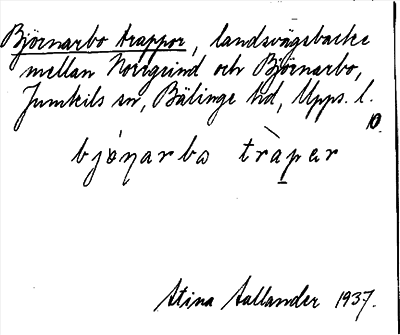 Björnarbo trappor, landsvägsbacke
mellan Norrgrind och Björnarbo,
Jumkils sn, Bälinge hd, Upps. l.
10.
bjö́ṇarbo tràpar
Stina Aallander 1937.